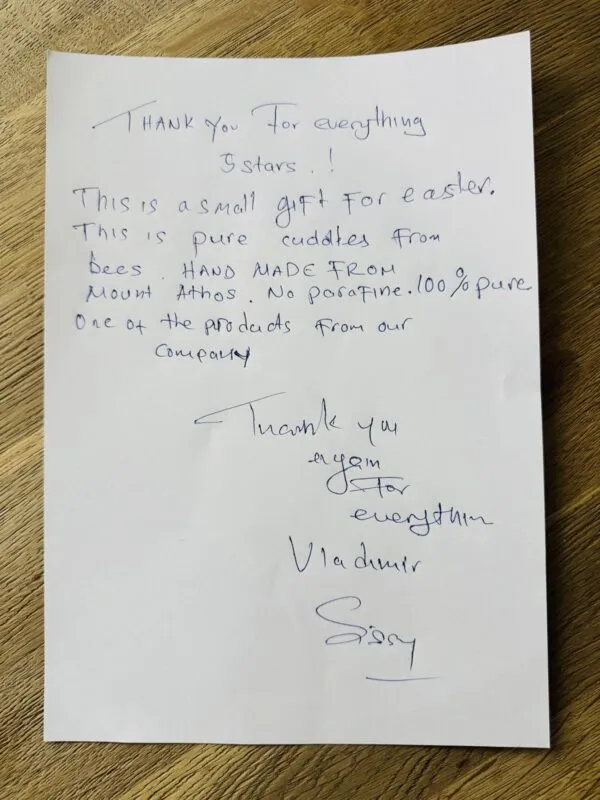 THANK You For everything
5 stars . !
This is a small gift For easter.
This is pure cuddles From
bees. HAND MADE FROM
Mount Athos. No parafine. 100% pure
One of the products From our
company
Thank you
again
For
everythin
Vladimir
Sissy